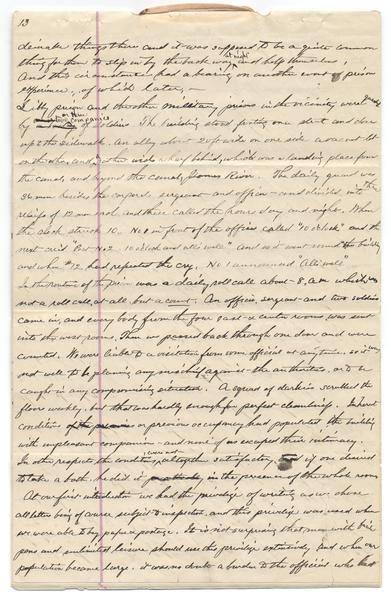 13
desirable things there and it was supposed to be a quite common
thing for them to slip in by the back way at night and help themselves,
And this circumstance had a bearing on another event of prison
experience, of which later,—
Libby prison and the other military prisons in the vicinity were guarded
by or two companies of soldiers. The building stood fronting one street and close
up to the sidewalk. An alley about 20 ft wide on one side a vacant lot
on the other, and a wide wharf behind, which was a landing place from
the canal, and beyond the canal, James River. The daily guard was
36 men besides the corporal, sergeant and officer — and divided into the
reliefs of 12 men each, and these called the hours day and night. When
the clock struck 10. No 1 in front of the office called "10 o'clock" and the
next cried "Post No 2. 10 o'clock and all's well" And so it went round the building
and when # 12 had repeated the cry, No 1 announced "All's well"
In the routine of the prison was a daily roll call about 8, a.m. which was
not a roll call at all, but a count. An officer, sergeant and two soldiers
came in, and every body from the four east & center rooms was sent
into the west rooms. Then we passed back through one door and were
counted. We were liable to a visitation from some official at any time, so it was
not well to be planning any mischief against the authorities, or to be
caught in any compromising situation. A squad of darkies scrubbed the
floors weekly, but that was hardly enough for perfect cleanliness.
condition or previous occupancy had populated the building
with unpleasant companions — and none of us escaped their intimacy.
In other respects the conditions were not altogether satisfactory, if one desired
to take a bath he did it, in the presence of the whole room
At our first introduction we had the privilege of writing as we chose
all letters being of course subject to inspection, and this privilege was used when
we were able to buy paper & postage. It is not surprising that men with
pens and unlimited leisure should use this privilege extensively, and when our
population became large, it was no doubt a burden to the officials who had